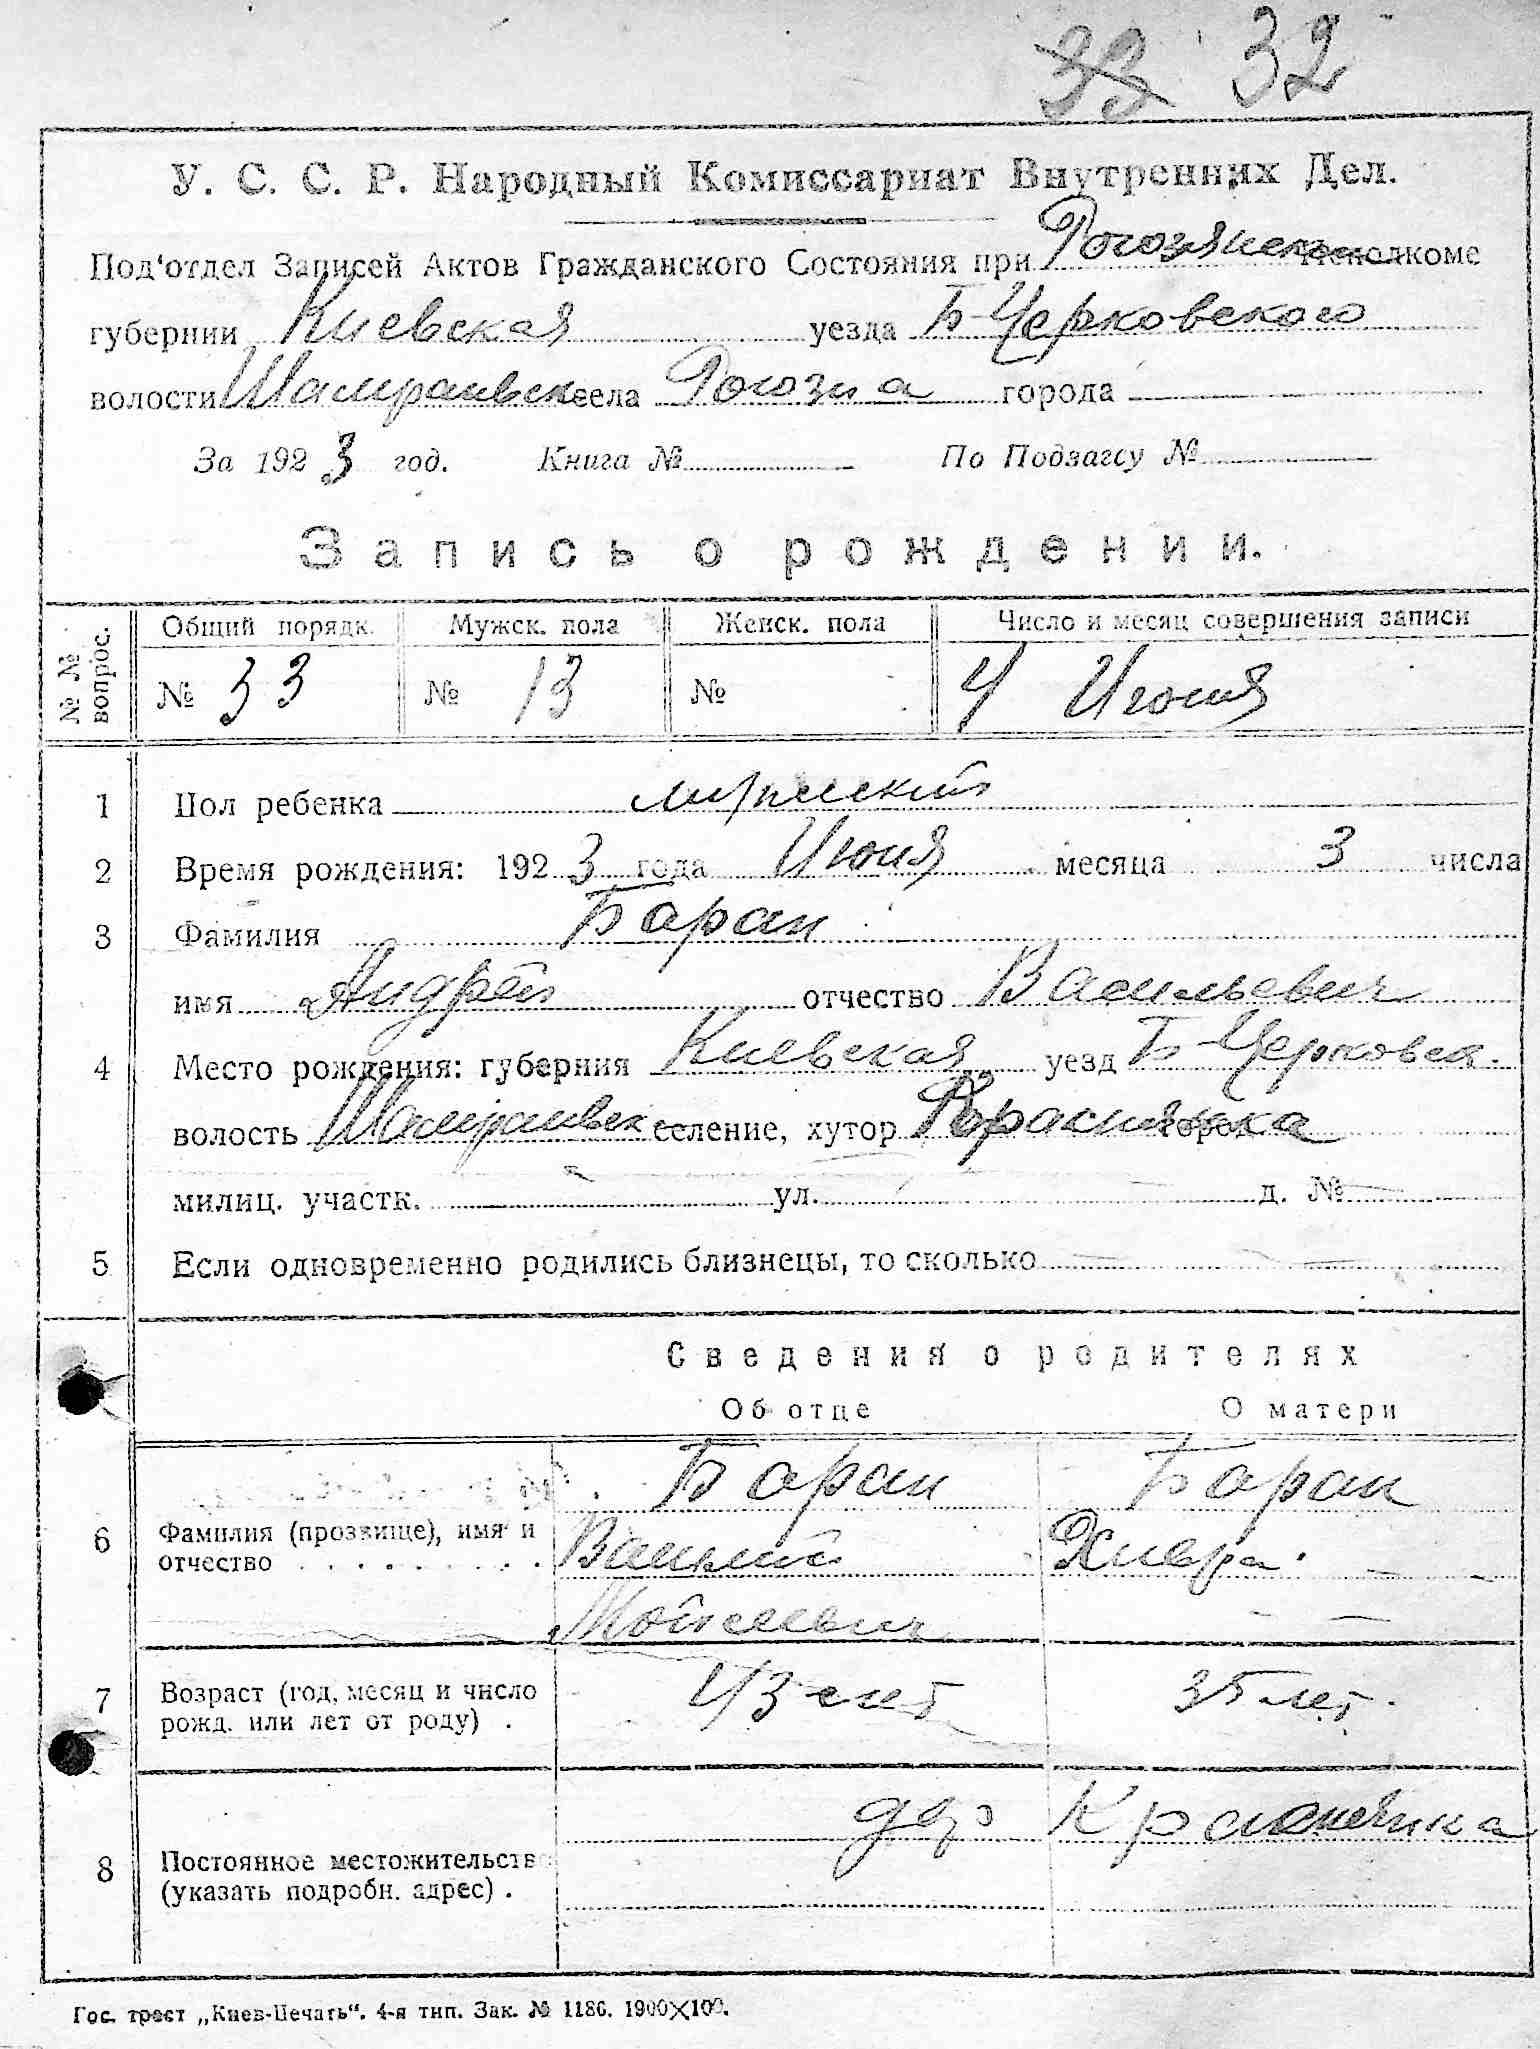 33 32
У. С. С. Р. Народный Комиссариат Внутренних Дел.
Под'отдел Записей Актов Гражданского Состояния при Рогозянск Исполкоме
губернии Киевская уезда Б-Церковского
волости Шамраивск села Рогозна города
За 1923 год. Книга № По Подзагсу №
Запись о рождении.
№ № вопрос. Общий порядк. Мужск. пола Женск. пола Число и месяц совершения записи
№ 33 № 13 № 4 Июня
1 Пол ребенка мужеский
2 Время рождения: 1923 года Июня месяца 3 числа
3 Фамилия Баран
имя Андрей отчество Васильевич
4 Место рождения: губерния Киевская уезд Б-Церковск.
волость Шамраивск селение, хутор город
милиц. участк. ул. д. №
5 Если одновременно родились близнецы, то сколько
Сведения о родителях
Об отце О матери
Баран Баран
6 Фамилия (прозвище), имя и отчество Василий Хивра
Мойсеевич
7 Возраст (год, месяц и число рожд. или лет от роду) . 43 лет 35 лет.
дер Краснянка
8 Постоянное местожительство (указать подробн. адрес) .
Гос. трест „Киев-Печать". 4-я тип. Зак. № 1186. 1900×100.